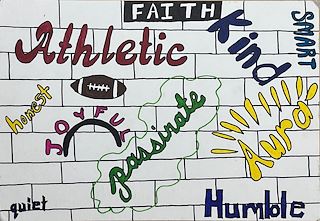 FAITH
Athletic
Kind
SMART
honest
JOYFUL
passinate
Aura
quiet
Humble